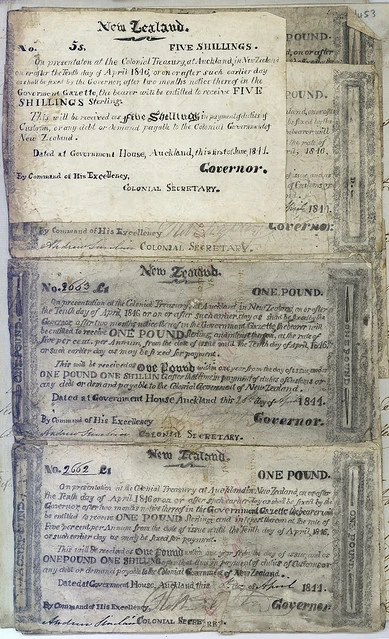 4053
New Zealand.
No. 5s. FIVE SHILLINGS.
On presentation at the Colonial Treasury, at Auckland, in New Zealand
on or after the Tenth day of April 1846, or on or after such earlier day
as shall be fixed by the Governor, after two months notice thereof in the
Government Gazette, the bearer will be entitled to receive FIVE
SHILLINGS Sterling.
This will be received as five Shillings in payment of duties of
Customs, or any debt or demand payable to the Colonial Government of
New Zealand.
Dated at Government House, Auckland, this first of June, 1844.
Governor.
By Command of His Excellency,
COLONIAL SECRETARY.
POUND.
POUND.
1844.
By Command of His Excellency
Governor.
Andrew Sinclair COLONIAL SECRETARY.
New Zealand.
No. 2663 £1 ONE POUND.
On presentation at the Colonial Treasury, at Auckland in New Zealand, on or after
the Tenth day of April 1846 or on or after such earlier day as shall be fixed by the
Governor, after two months notice thereof in the Government Gazette, the bearer will
be entitled to receive ONE POUND Sterling, and interest thereon, at the rate of
five per cent. per Annum, from the date of issue until the Tenth day of April, 1846,
or such earlier day as may be fixed for payment.
This will be received as One Pound within one year from the day of issue and as
ONE POUND ONE SHILLING after that time in payment of duties of Customs or
any debt or demand payable to the Colonial Government of New Zealand.
Dated at Government House Auckland this day of April 1844.
By Command of His Excellency Governor.
Andrew Sinclair COLONIAL SECRETARY.
New Zealand.
No. 2662 £1 ONE POUND.
On presentation at the Colonial Treasury, at Auckland in New Zealand, on or after
the Tenth day of April 1846 or on or after such earlier day as shall be fixed by the
Governor after two months notice thereof in the Government Gazette the bearer will
be entitled to receive ONE POUND Sterling, and interest thereon at the rate of
Five per cent. per Annum from the date of issue until the Tenth day of April, 1846,
or such earlier day as may be fixed for payment.
This will be received as One Pound within one year from the day of issue, and as
ONE POUND ONE SHILLING after that day in payment of duties of Customs or
any debt or demand payable to the Colonial Government of New Zealand.
Dated at Government House, Auckland, this day of April 1844.
By Command of His Excellency, Governor.
Andrew Sinclair COLONIAL SECRETARY.